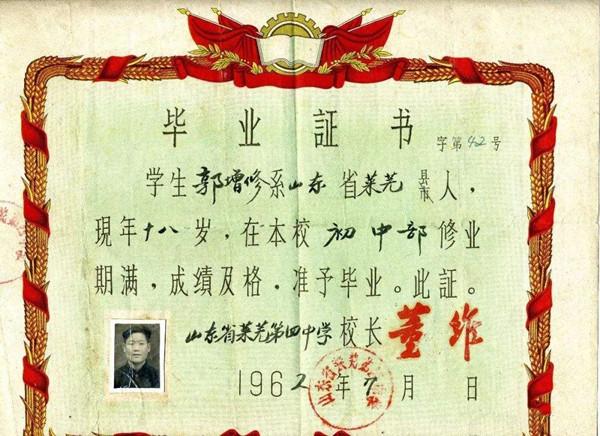 毕业証书
字第42号
学生郭增修系山东省莱芜县市人，
現年十八岁，在本校初中部修业
期满，成績及格，准予毕业。此証。
山东省莱芜第四中学校长董维
1962年7月 日